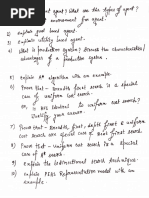 agent? What are the types of agent?
environment for agent.
2) Explain goal based agent.
3) Explain utility based agent.
4) What is production system? Discuss the characteristics/
advantages of a production system.
5) Explain A* algorithm with an example.
6) Prove that - Breadth first search is a special
case of uniform cost search.
or
Is BFS identical to
Justify your
7) Prove that - Breadth first, depth first & uniform
cost search are special case of best first search.
8) Prove that - Uniform cost search is a special
case of A* search
9) Explain the bidirectional search technique.
Explain PEAS Representation model with an
example.